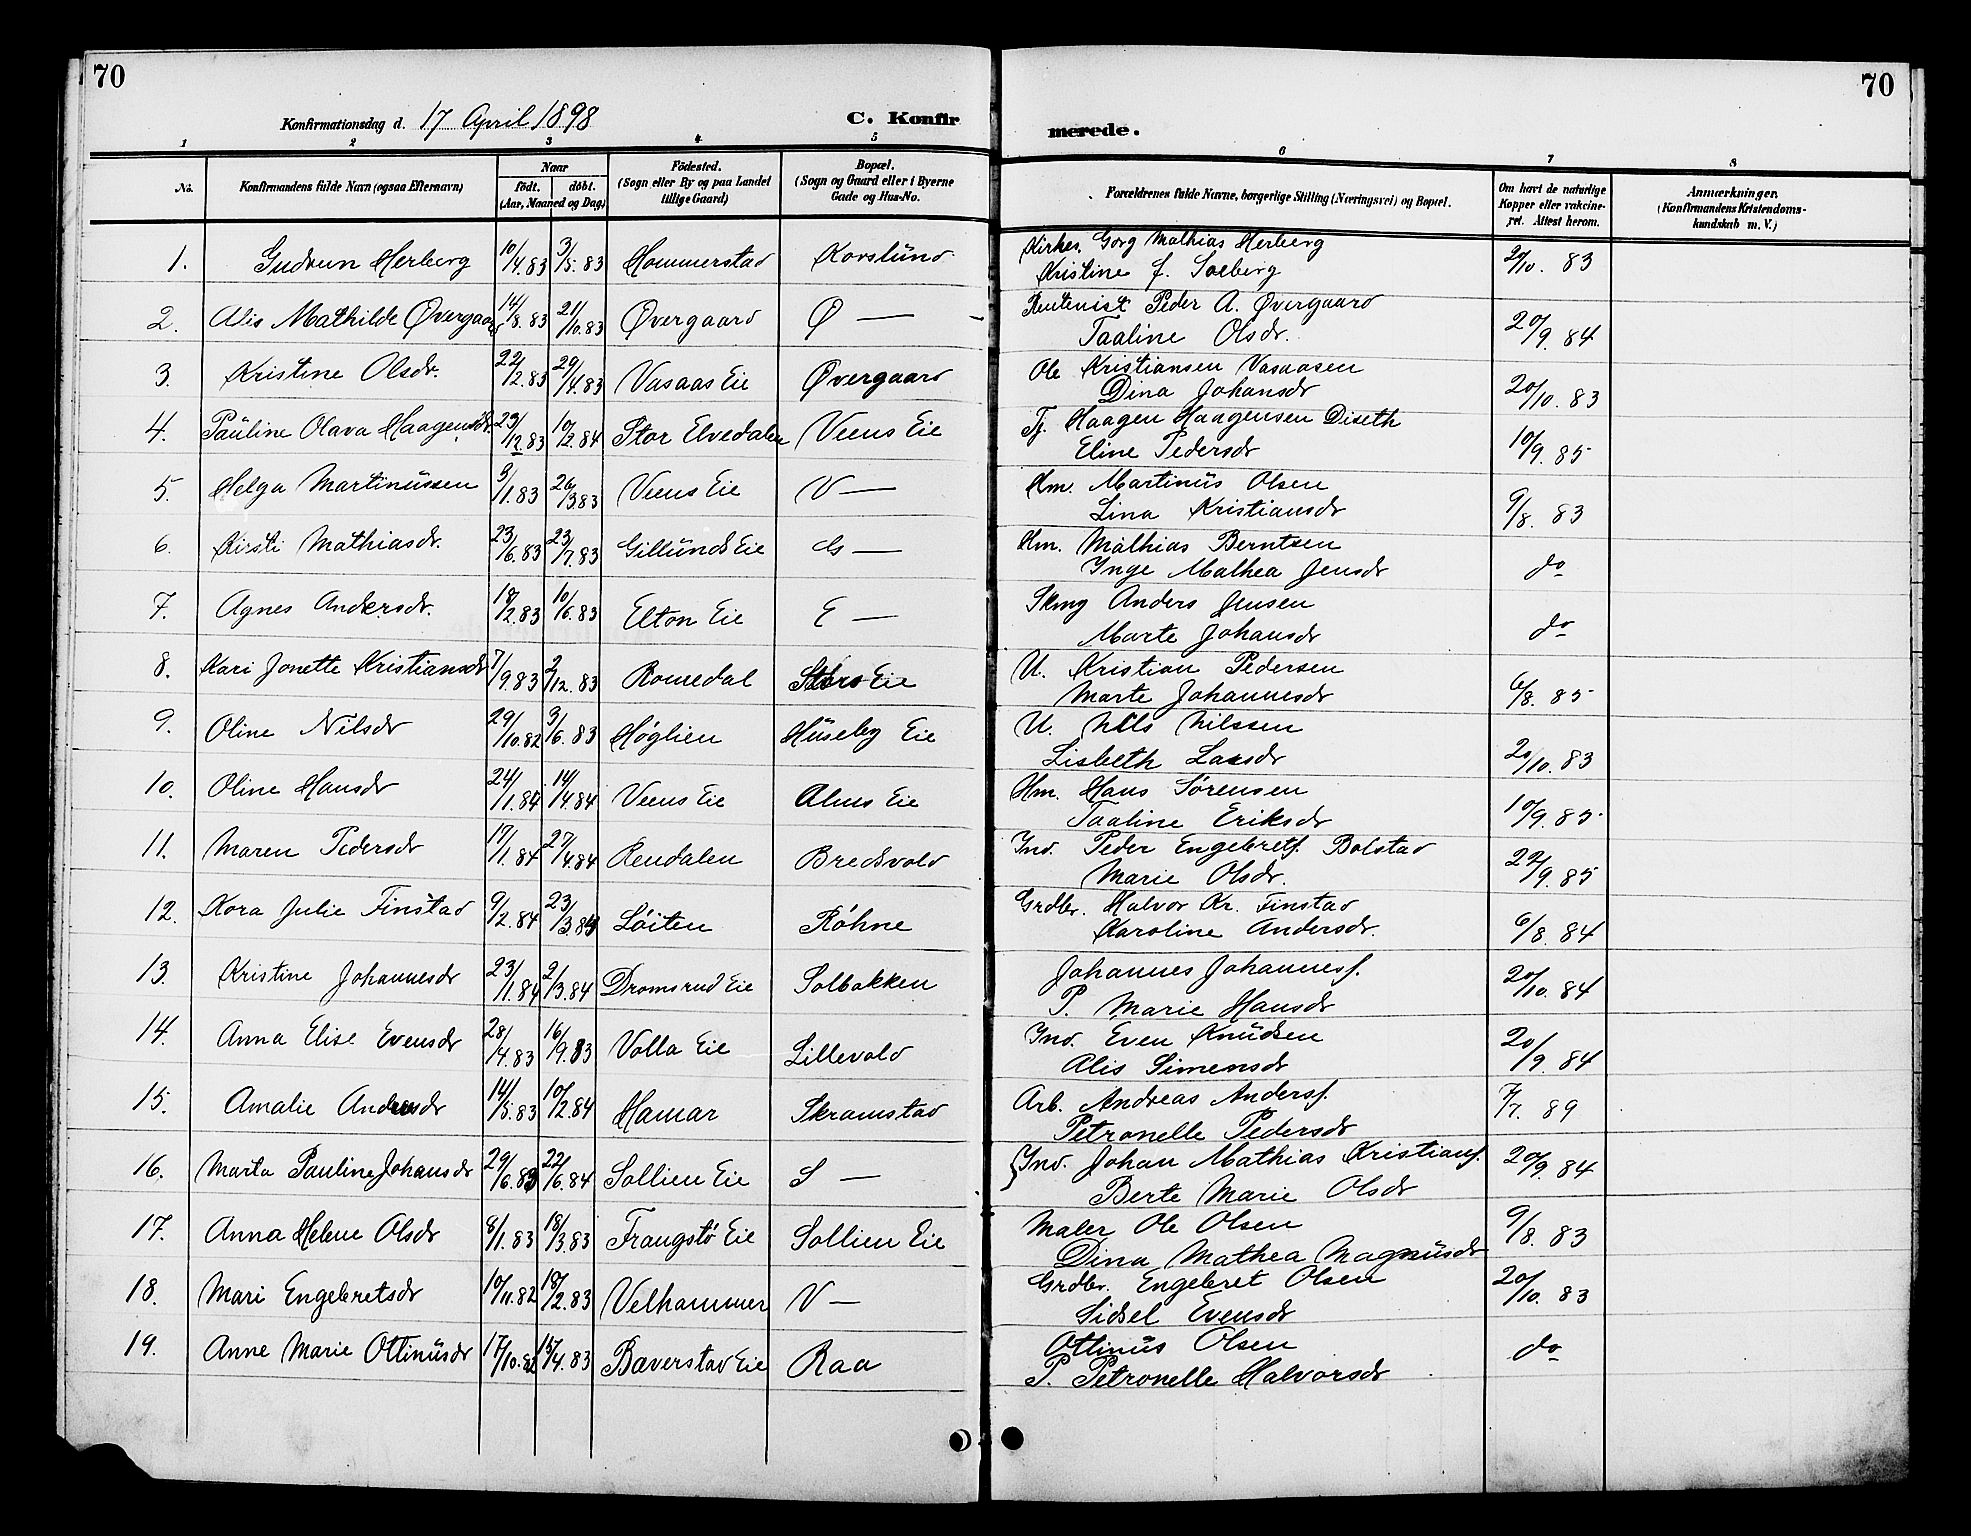 70
70
Konfirmationsdag d. 17 April 1898
C. Konfir
merede.
1 2 3 4 5 6 7 8
No. Konfirmandens fulde Navn (ogsaa Efternavn) Naar født. døbt. (Aar, Maaned og Dag) Fødested. (Sogn eller By og paa Landet tillige Gaard) Bopæl. (Sogn og Gaard eller i Byerne Gade og Hus-No. Forældrenes fulde Navne, borgerlige Stilling (Næringsvei) og Bopæl. Om havt de naturlige Kopper eller vakcineret. Attest herom. Anmærkninger. (Konfirmandens Kristendomskundskab m. V.)
1. Gudrun Herberg 10/4.83 3/5.83 Hommerstad Korslund Kirkes. Georg Mathias Herberg 20/10. 83
Kristine f. Soeberg
2. Alis Mathilde Øvergaard 14/8.83 21/10.83 Øvergaard Ø — Rutenist Peder A. Øvergaard
Taaline Olsdr. 20/9. 84
3. Kristine Olsdr. 22/2.83 29/4.83 Vasaas Eie Øvergaard Ole Kristiansen Vasaasen
Dina Johansdr 20/10. 83
4. Pauline Olava Haagensdr. 23/12.83 10/2.84 Stor Elvedalen Veens Eie Tj. Haagen Haagensen Diseth
Eline Pedersdr 10/9. 85
5. Helga Martinussen 3/1.83 26/3.83 Veens Eie V — Hm. Martinus Olsen
Lina Kristiansdr 9/8. 83
6. Kirsti Mathiasdr. 23/6.83 23/7.83 Gillunds Eie G — Hm. Mathias Berntsen
Inge Mathea Jensdr do
7. Agnes Andersdr. 18/2.83 10/6.83 Elton Eie E — Skmg Anders Jensen
Marte Johansdr do
8. Kari Jonette Kristiansdr 7/9.83 2/12.83 Romedal Eie U. Kristian Pedersen
Marte Johannesdr 6/8. 85
9. Oline Nilsdr 29/10.82 3/6.83 Høglien Huseby Eie U. Nils Nilssen
Lisbeth Larsdr 20/10. 83
10. Oline Hansdr 24/1.84 14/4.84 Veens Eie Alms Eie Hm. Hans Sørensen
Taaline Eriksdr 10/9. 85
11. Maren Pedersdr 17/1.84 27/4.84 Rendalen Bredsvold Ind. Peder Engebretf. Bolstad
Marie Olsdr. 22/9. 85
12. Kora Julie Finstad 9/2.84 23/3.84 Løiten Røhne Grdbr. Halvor Kr. Finstad
Karoline Andersdr. 6/8. 84
13. Kristine Johannesdr 23/1.84 2/3.84 Dromsrud Eie Solbakken Johannes Johannesf. 20/10. 84
P. Marie Hansdr
14. Anna Elise Evensdr 28/4.83 16/9.83 Volla Eie Lillevold Ind. Even Knudsen 20/9. 84
Alis Simensdr
15. Amalie Andersdr 14/5.83 10/2.84 Hamar Skramstad Arb. Andreas Andersf. 7/7. 89
Petronelle Pedersdr
16. Marta Pauline Johansdr 29/6.83 22/6.84 Sollien Eie S — Ind. Johan Mathias Kristianf. 20/9. 84
Berte Marie Olsdr
17. Anna Helene Olsdr 8/1.83 18/3.83 Frangstø Eie Sollien Eie Maler Ole Olsen 9/8. 83
Dina Mathea Magnusdr
18. Mari Engebretsdr 10/11.82 18/2.83 Velhammer V — Grdbr. Engebret Olsen 20/10. 83
Sidsel Evensdr
19. Anne Marie Ottinusdr 17/10.82 15/4.83 Bæverstad Eie Raa Ottinus Olsen do
P. Petronelle Halvorsdr